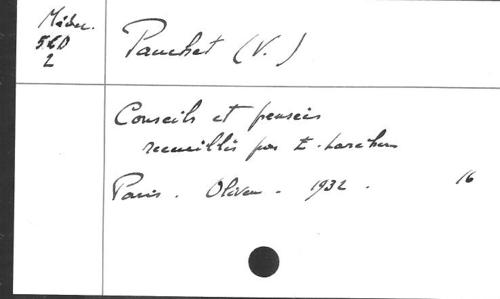 Méder.
560
2
Pauchet (V.)
Conseils et pensées
recueillis par E. Larcher
Paris. Oliven. 1932. 16